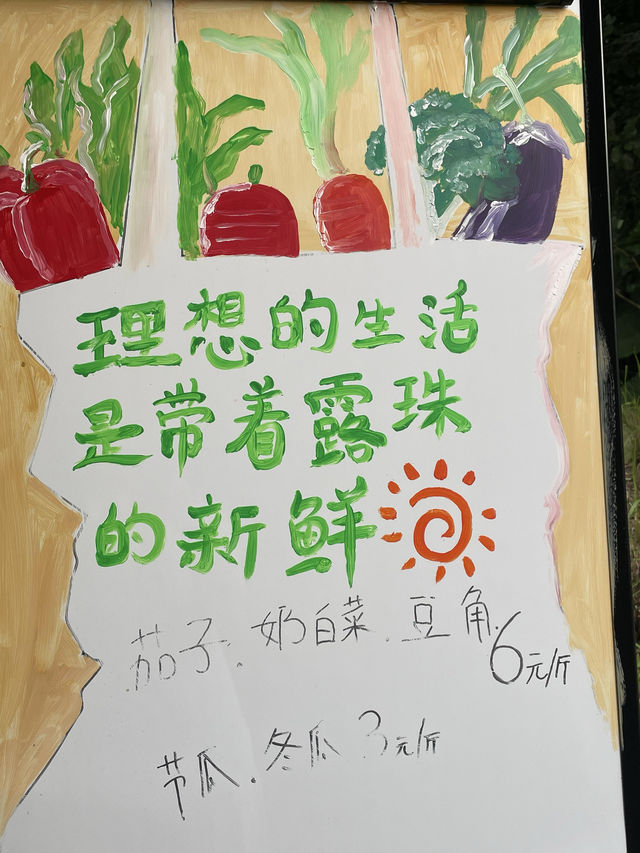 理想的生活
是带着露珠
的新鲜
茄子.奶白菜.豆角6元/斤
节瓜.冬瓜3元/斤